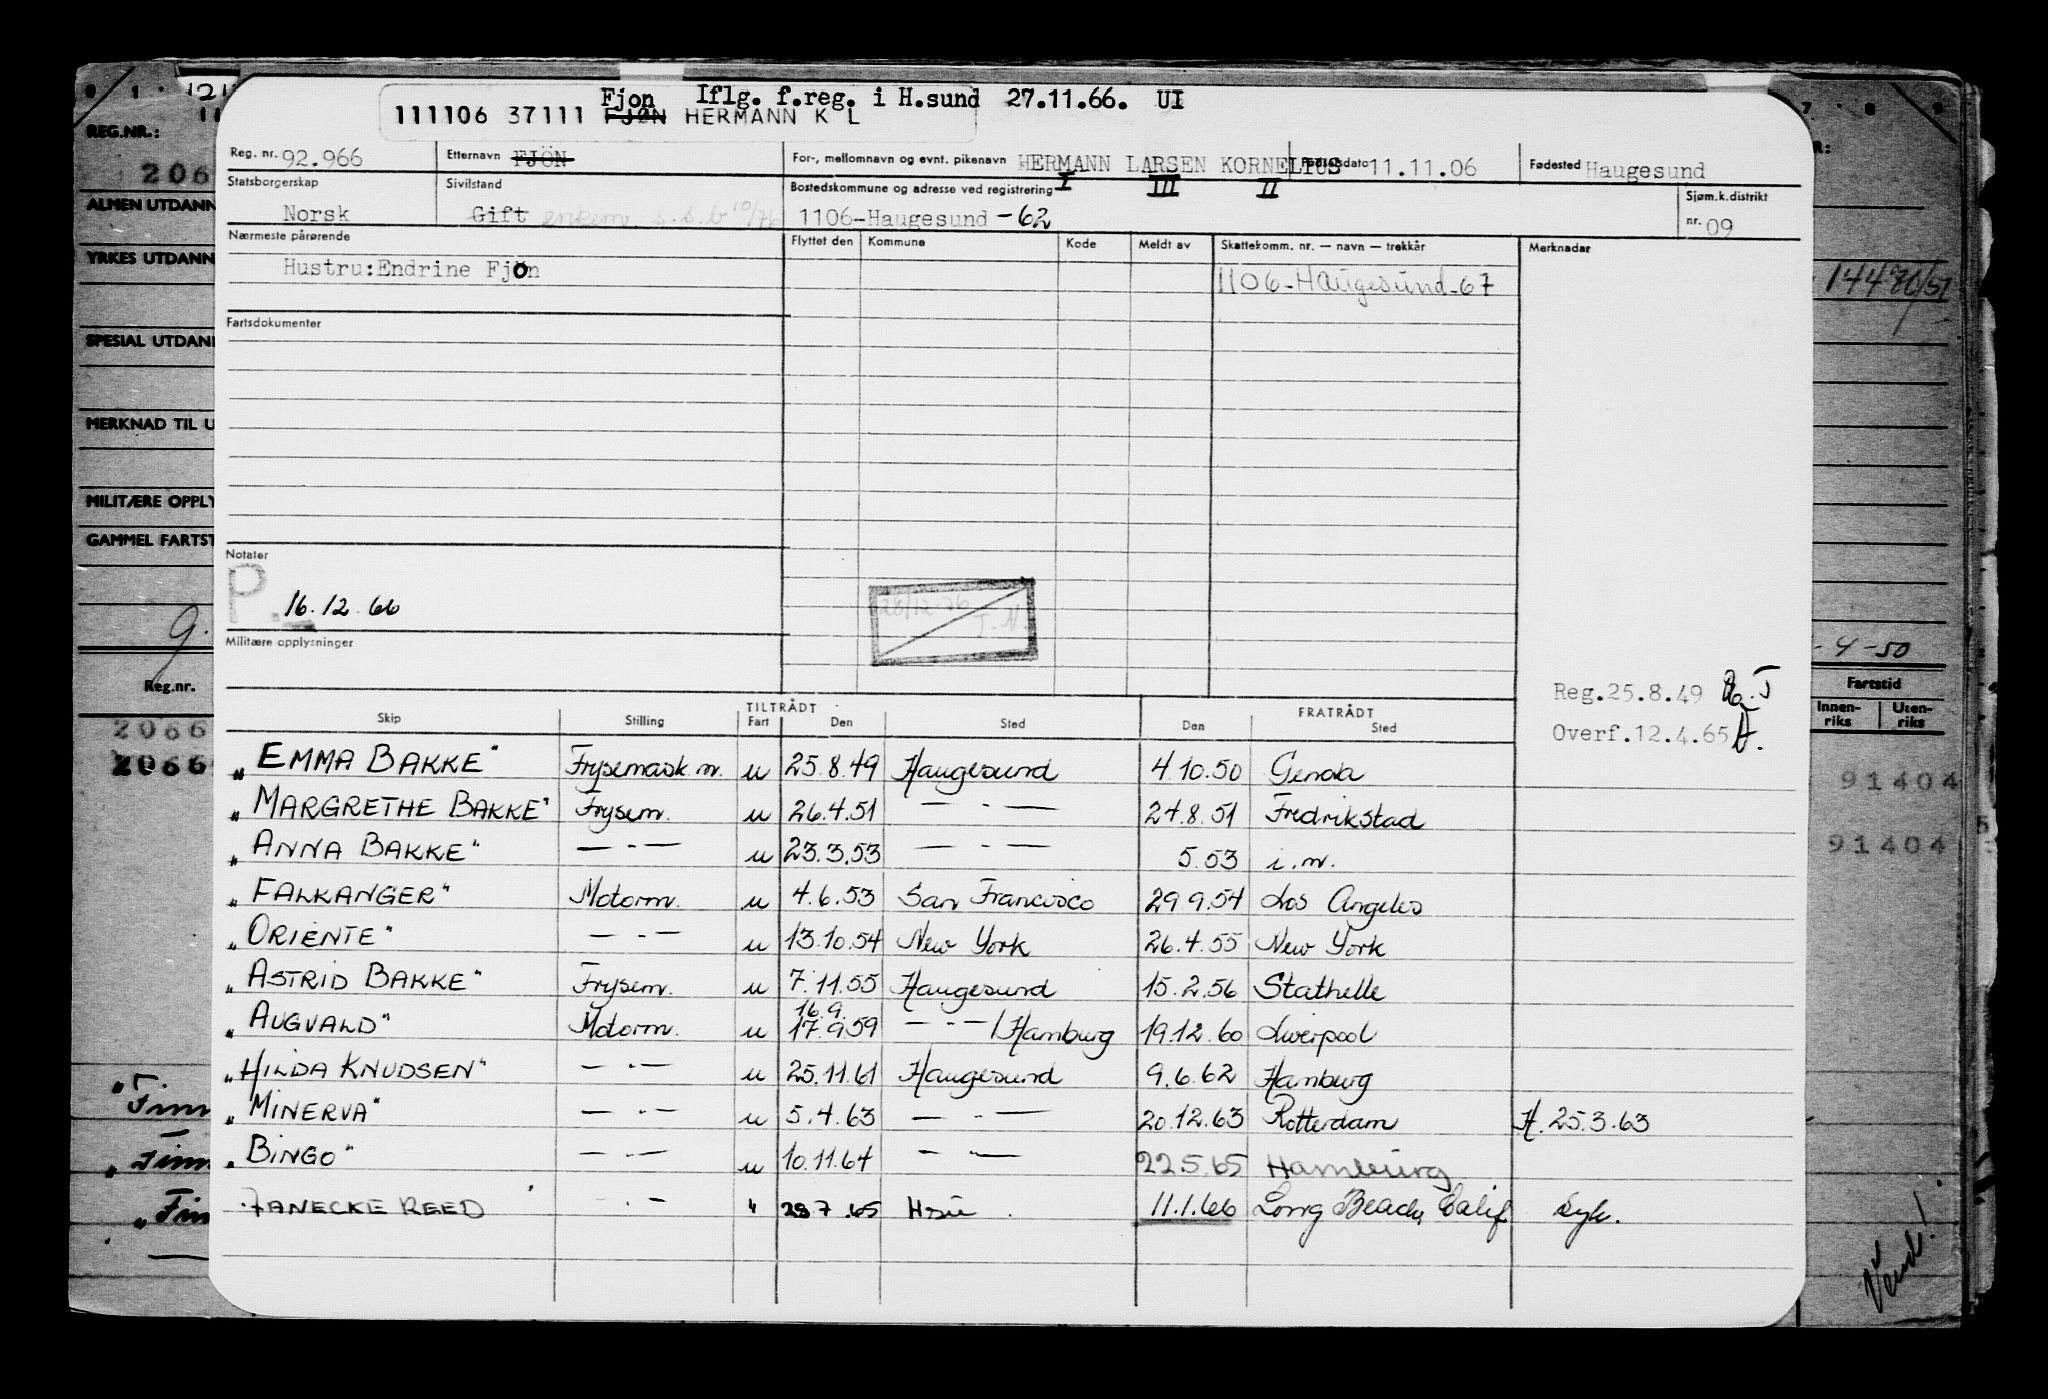 Fjon Iflg. f.reg. i H.sund 27.11.66. UI
111106 37111 FJØN HERMANN K L
Reg. nr. 92.966 Etternavn FJÖN For-, mellomnavn og evnt. pikenavn HERMANN LARSEN KORNELIUS Fødselsdato 11.11.06 Fødested Haugesund
I III II
Statsborgerskap Norsk Sivilstand Gift enkem. s.s.b 10/76 Bostedskommune og adresse ved registrering 1106-Haugesund -62 Sjøm.k.distrikt nr. 09
Nærmeste pårørende Flyttet den Kommune Kode Meldt av Skattekomm. nr. — navn — trekkår Merknadar
Hustru: Endrine Fjon 1106-Haugesund-67
Fartsdokumenter
Notater
P. 16.12.66
28/12-76
T.N.
Militære opplysninger
Reg.25.8.49
Overf.12.4.65
TILTRÅDT FRATRÅDT
Skip Stilling Fart Den Sted Den Sted
"EMMA BAKKE" Frysemask.m. u 25.8.49 Haugesund 4.10.50 Genoa
"MARGRETHE BAKKE" Frysem. u 26.4.51 — " — 27.8.51 Fredrikstad
"ANNA BAKKE" — " — u 23.3.53 — " — 5.53 i.m.
"FALKANGER" Motorm. u 4.6.53 San Francisco 29.9.54 Los Angeles
"ORIENTE" — " — u 13.10.54 New York 26.4.55 New York
"ASTRID BAKKE" Frysem. u 7.11.55 Haugesund 15.2.56 Stathelle
16.9.
"AUGVALD" Motorm. u 17.9.59 — " — /Hamburg 19.12.60 Liverpool
"HILDA KNUDSEN" — " — u 25.11.61 Haugesund 9.6.62 Hamburg
"MINERVA" — " — u 5.4.63 — " — 20.12.63 Rotterdam H. 25.3.63
"BINGO" — " — u 10.11.64 — " — 22.5.65 Hamburg
"JANECKE REED" — " — " 28.7.65 Hsu 11.1.66 Long Beach, Calif Syk.
REG.NR.:
206
ALMEN UTDANN
YRKES UTDANN
SPESIAL UTDAN
MERKNAD TIL U
MILITÆRE OPPLY
GAMMEL FARTST
Reg.nr.
2066
2066
"Finn
"Finn
"Finn
7 8 9
14480/51
-4-50
Fartstid
Innen-riks Uten-riks
91404
91404
Vend!